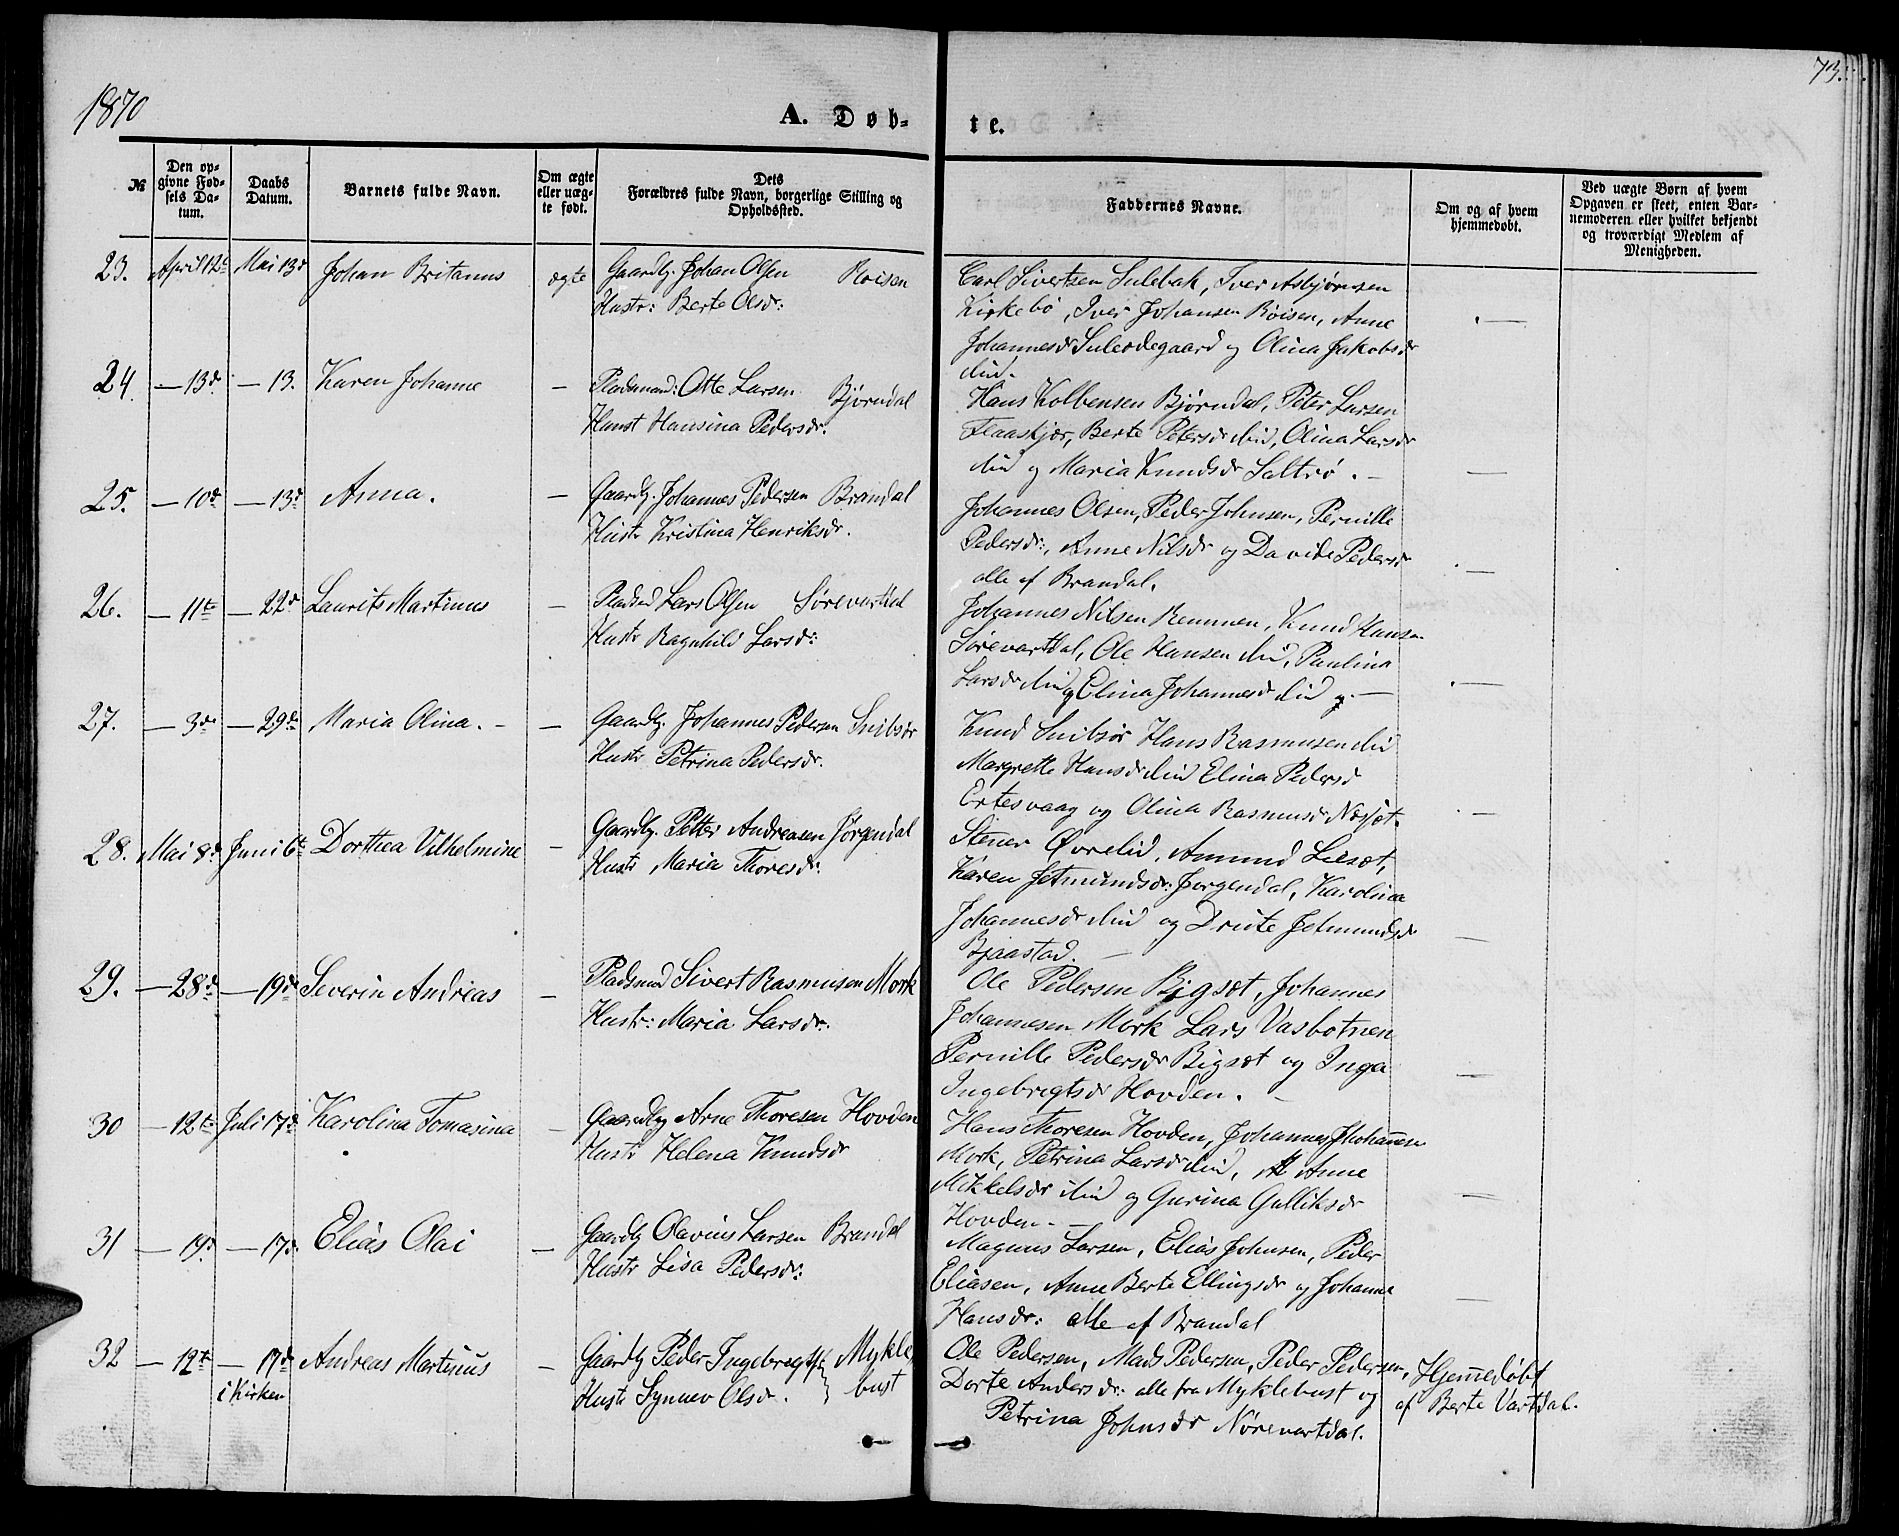 1870
A. Døb-
te.
73.
№
Den op-
givne Fød-
sels Da-
tum.
Daabs
Datum.
Barnets fulde Navn.
Om ægte
eller uæg-
te født.
Dets
Forældres fulde Navn, borgerlige Stilling og
Opholdssted.
Faddernes Navne.
Om og af hvem
hjemmedøbt.
Ved uægte Børn af hvem
Opgaven er skeet, enten Bar-
nemoderen eller hvilket bekjendt
og troværdigt Medlem af
Menigheden.
23. April 12t Mai 13d Johan Britanus ægte Gaardbr. Johan Olsen Roisen
Hustr: Berte Olsdr:
Carl Sivertsen Sulebak, Iver Asbjørnsen
Kirkebø, Iver Johansen Röisen, Anne
Johannesdr Suleødegaard og Olina Jakobsdr
ibid.
24. — 13d — 13. Karen Johanne — Pladsmand: Otte Larsen Bjørndal
Hust Hansina Pedersdr.
Hans Kolbensen Bjørndal, Peter Larsen
Flaaskjær, Berte Petersdr ibid, Olina Larsdr
ibid og Maria Knudsdr Saltrö. —
25. — 10d — 13d Anna. — Gaardbr. Johannes Pedersen Brandal
Hustr Kristina Henriksdr.
Johannes Olsen, Peder Johnsen, Pernille
Pedersdr:, Anne Nilsdr og Davide Pedersdr
alle af Brandal.
26. — 11te — 22d Laurits Martinus — Pladsmd Lars Olsen Sørevartdal
Hustr Ragnhild Larsdr:
Johannes Nilsen Remmen, Knud Hansen
Sørevartdal, Ole Hansen ibid, Paulina
Larsdr ibid og Elina Johannesdr ibid
27. — 3de — 29de Maria Olina. — — Gaardbr. Johannes Pedersen Snibsör
Hustr Petrina Pedersdr.
Knud Snibsör Hans Rasmusen ibid
Margrette Hansdr ibid Elina Pedersdr
Ertesvaag og Olina Rasmusdr
28. Mai 8d Juni 6te Dorthea Vilhelmine — Gaardbr. Petter Andreasen Jörgendal
Hustr Maria Thoresdr:
Stener Øvrelid, Amund Lilsæt,
Karen Jetmundsdr: Jørgendal, Karolina
Johannesdr ibid og Drute Jetmundsdr
Bjaastad. —
29. — 28de — 19de Severin Andreas — Pladsmand Sivert Rasmusen Mork
Hustr: Maria Larsdr:
Ole Pedersen Bigsæt, Johannes
Johannesen Mork Lars Vasbotnen
Pernille Pedersdr Bigsæt og Inga
Ingebregtsdr Hovden. —
30 — 12te Juli 17de Karolina Tomasina — Gaardbr Arne Thoresen Hovden
Hustr Helena Knudsdr
Hans Thoresen Hovden, Johannes Johannesen
Mork, Petrina Larsdr ibid, Anne
Mikkelsdr ibid og Gurina Gulliksdr
Hovden. —
31 — 19d — 17de Elias Olai — Gaardbr Olavius Larsen Brandal
Hustr Lisa Pedersdr:
Magnus Larsen, Elias Johnsen, Peder
Eliasen, Anne Berte Ellingsdr og Johanne
Hansdr: alle af Brandal
32 — 12te — 17de Andreas Martinus — Gaardbr Peder Ingebregts. Mykle-
i Kirken Hustr Synnev Olsdr. bust
Ole Pedersen, Mads Pedersen, Peder Pedersen, Hjem̄edøbt
Dorte Andersdr: alle fra Myklebust og af Berte Vartdal.
Petrina Johnsdr Nörevartdal.